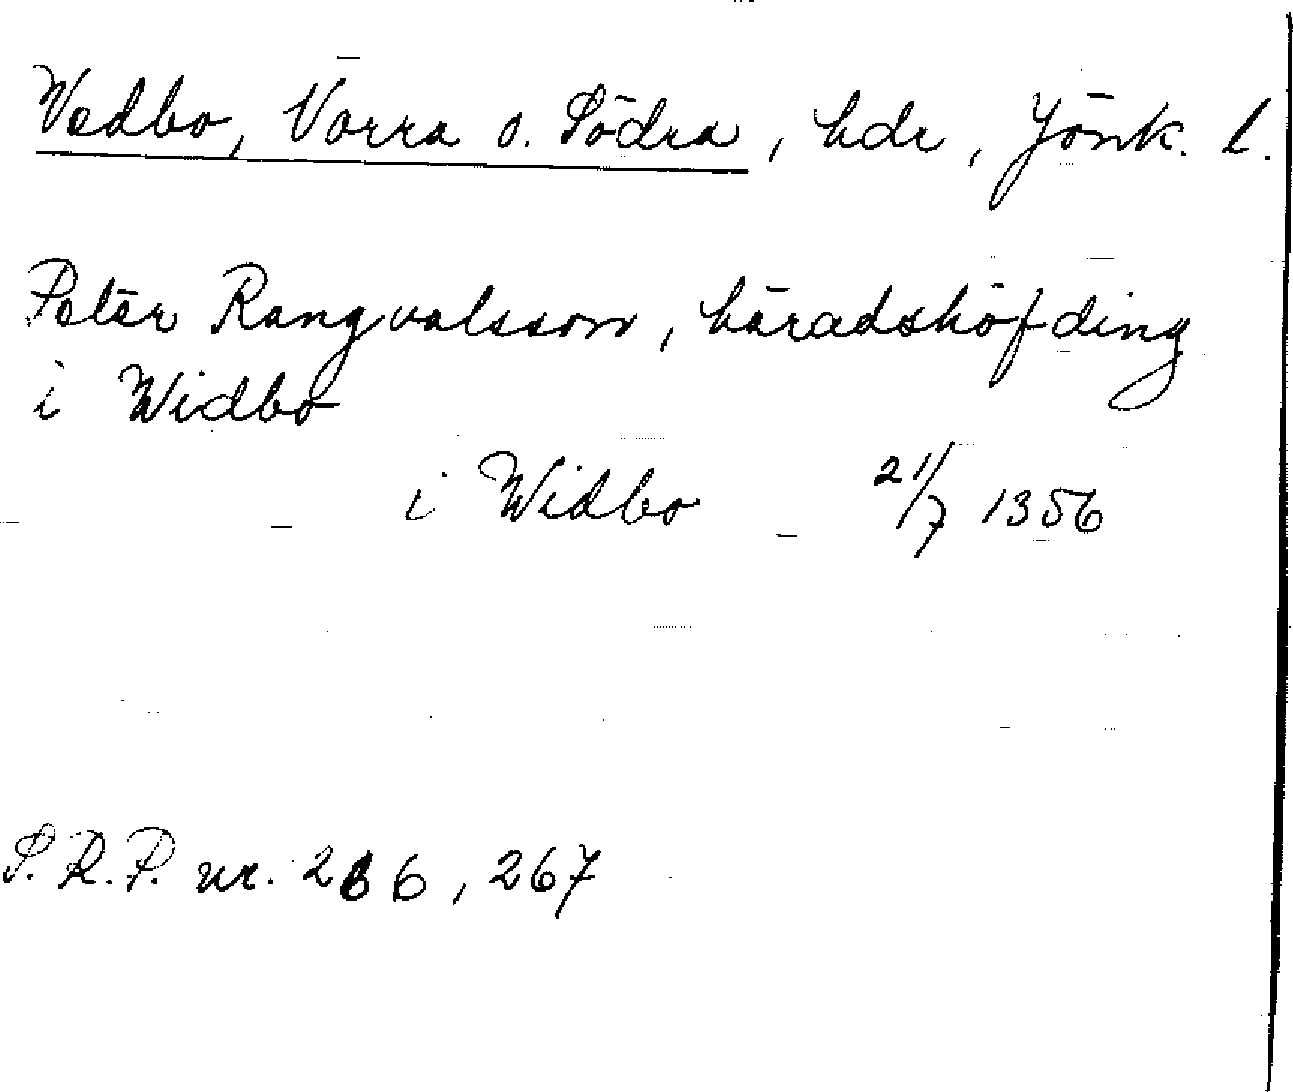 Vedbo, Norra o. Södra, hdr, Jönk. l.
Peter Rangvalsson, häradshöfding
i Widbo
i Widbo 21/7 1356
S.R.P. nr. 266, 267